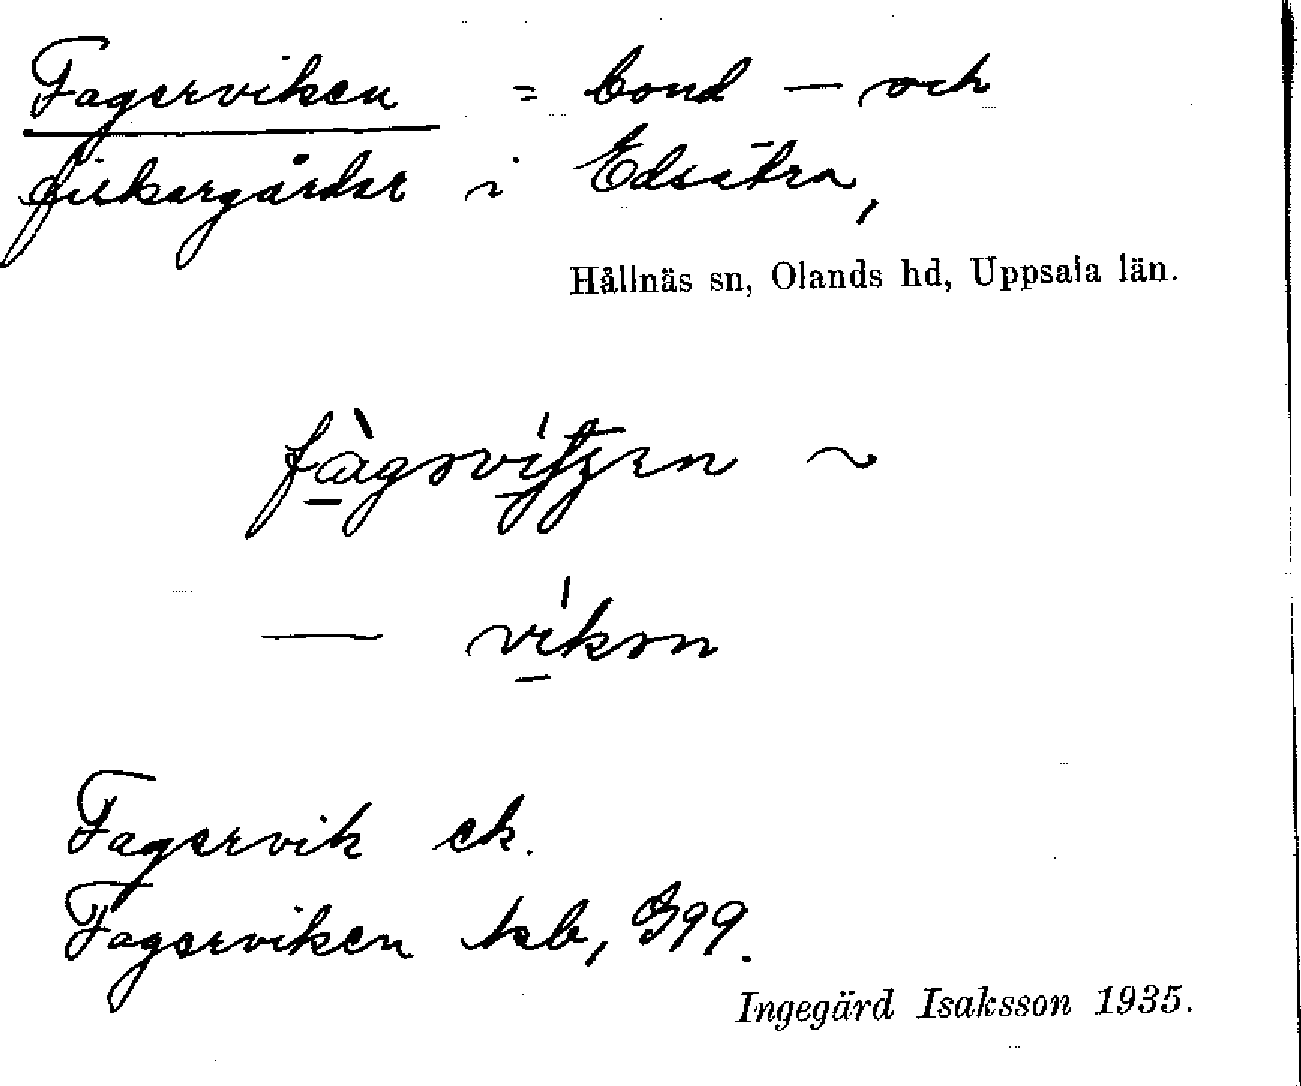 Fagerviken = bond – och
fiskargårdar i Edsätra,
Hållnäs sn, Olands hd, Uppsala län.
— vikən
Fagervik ek.
Fagerviken tab, G99.
Ingegärd Isaksson 1935.